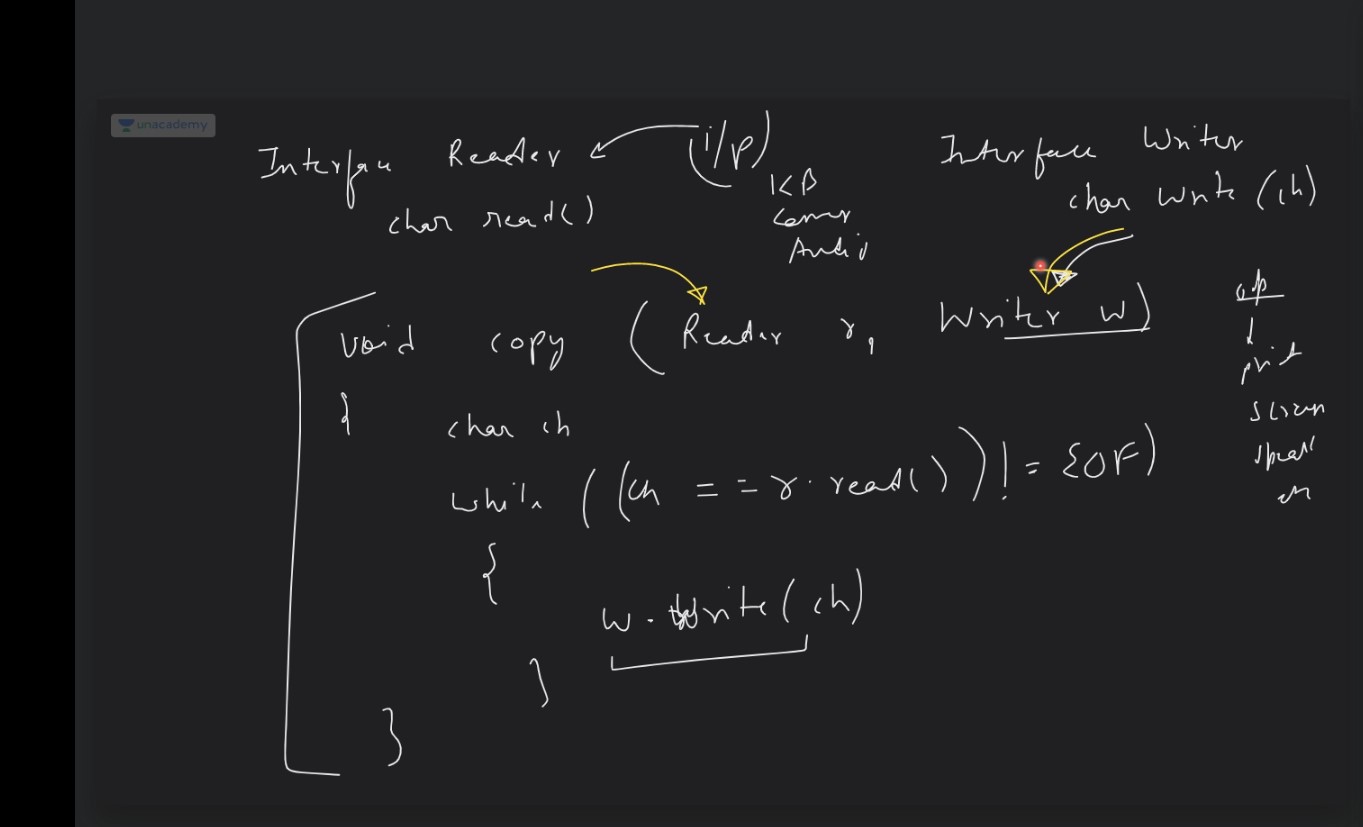 unacademy
Interface Reader (i/p)
char read()
KB
Camer
Audio
Interface Writer
char Write (ch)
void copy (Reader r, Writer w)
{
char ch
while ((ch == r.read()) != EOF)
{
w.Write(ch)
}
}
op
print
screen